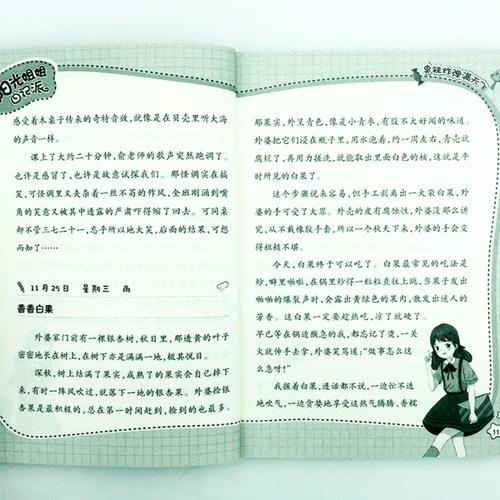 阳光姐姐
日记派
感受着木桌子传来的奇特音效,就像是在贝壳里听大海
的声音一样。
课上了大约二十分钟,俞老师的歌声突然跑调了。
也许是感冒了,也许是故意试探我们。那怪调实在搞
笑,可怪调里又夹杂着一丝不苟的作风,全班刚涌到嘴
角的笑意又被其中透露的严肃吓得缩了回去。可同桌
却不管三七二十一,忘乎所以地大笑,后面的结果,可想
而知了……
11月25日 星期三 雨
香香白果
外婆家门前有一棵银杏树,秋日里,那透黄的叶子
密密地长在树上,在树下亦是满满一地,极其悦目。
深秋,树上结满了果实,成熟了的果实会自己掉下
来,有时一阵风吹过,就落下一地的银杏果。外婆捡银
杏果是最积极的,总在第一时间赶到,捡到的也最多。
臭袜炸弹满天飞
那果实,外呈青色,像是小青枣,有股不大好闻的味道。
外婆把它们浸在瓶子里,用水泡着,约一周左右,青壳就
腐烂了,再用力搓洗,就能取出里面白色的核,这就是平
时所见的白果了。
这个步骤说来容易,但手工剥离出一大朵白果,外
婆的手可受了大罪。外壳的皮有腐蚀性,外婆没那么讲
究,从不戴橡胶手套,所以一个秋天下来,外婆的手会变
得粗糙不堪。
今天,白果终于可以吃了。白果最常见的吃法是
炒,噼里啪啦,在锅里炒得一粒粒直往上跳,当果子发出
啪啪的爆裂声时,会露出黄绿色的果肉,散发出迷人的
芳香。这白果一定要趁热吃,凉了就硬了。
早已等在锅边猴急的我,都忘记了烫,一关
火就伸手去拿,外婆笑骂道:“做事怎么这
么急呀!”
我握着白果,连话都不说,一边忙不迭
地吹气,一边贪婪地享受这热气腾腾、香糯
11